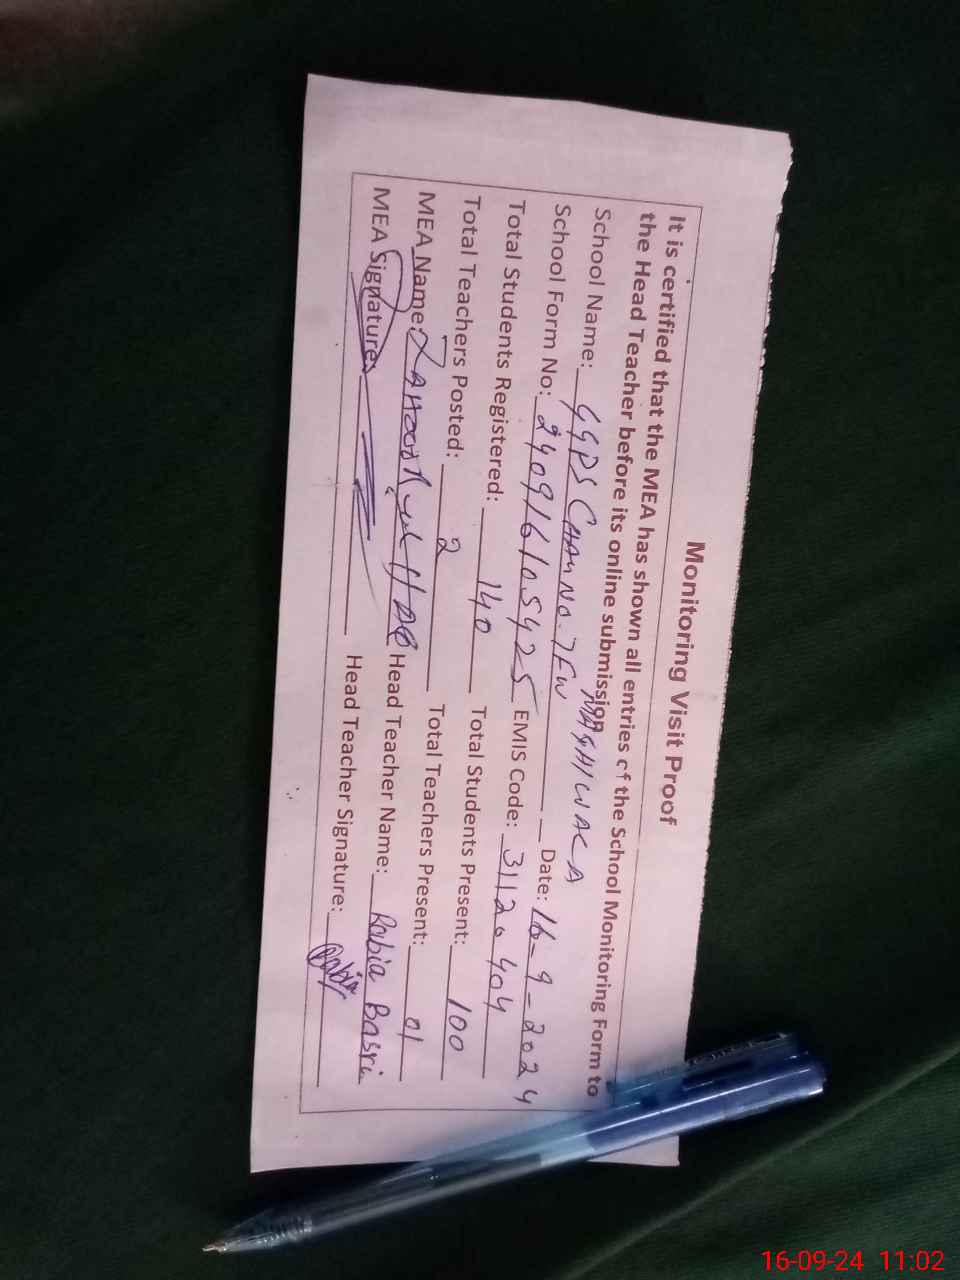 Monitoring Visit Proof
It is certified that the MEA has shown all entries of the School Monitoring Form to
the Head Teacher before its online submission
School Name: GGPS CHAH NO. 7 FW MAGHIWALA Date: 16-9-2024
School Form No: 24091610.5425 EMIS Code: 31120404
Total Students Registered: 140 Total Students Present: 100
Total Teachers Posted: 2 Total Teachers Present: 01
MEA Name: Head Teacher Name: Rabia Basri
MEA Signature: Head Teacher Signature: Rabia
16-09-24 11:02